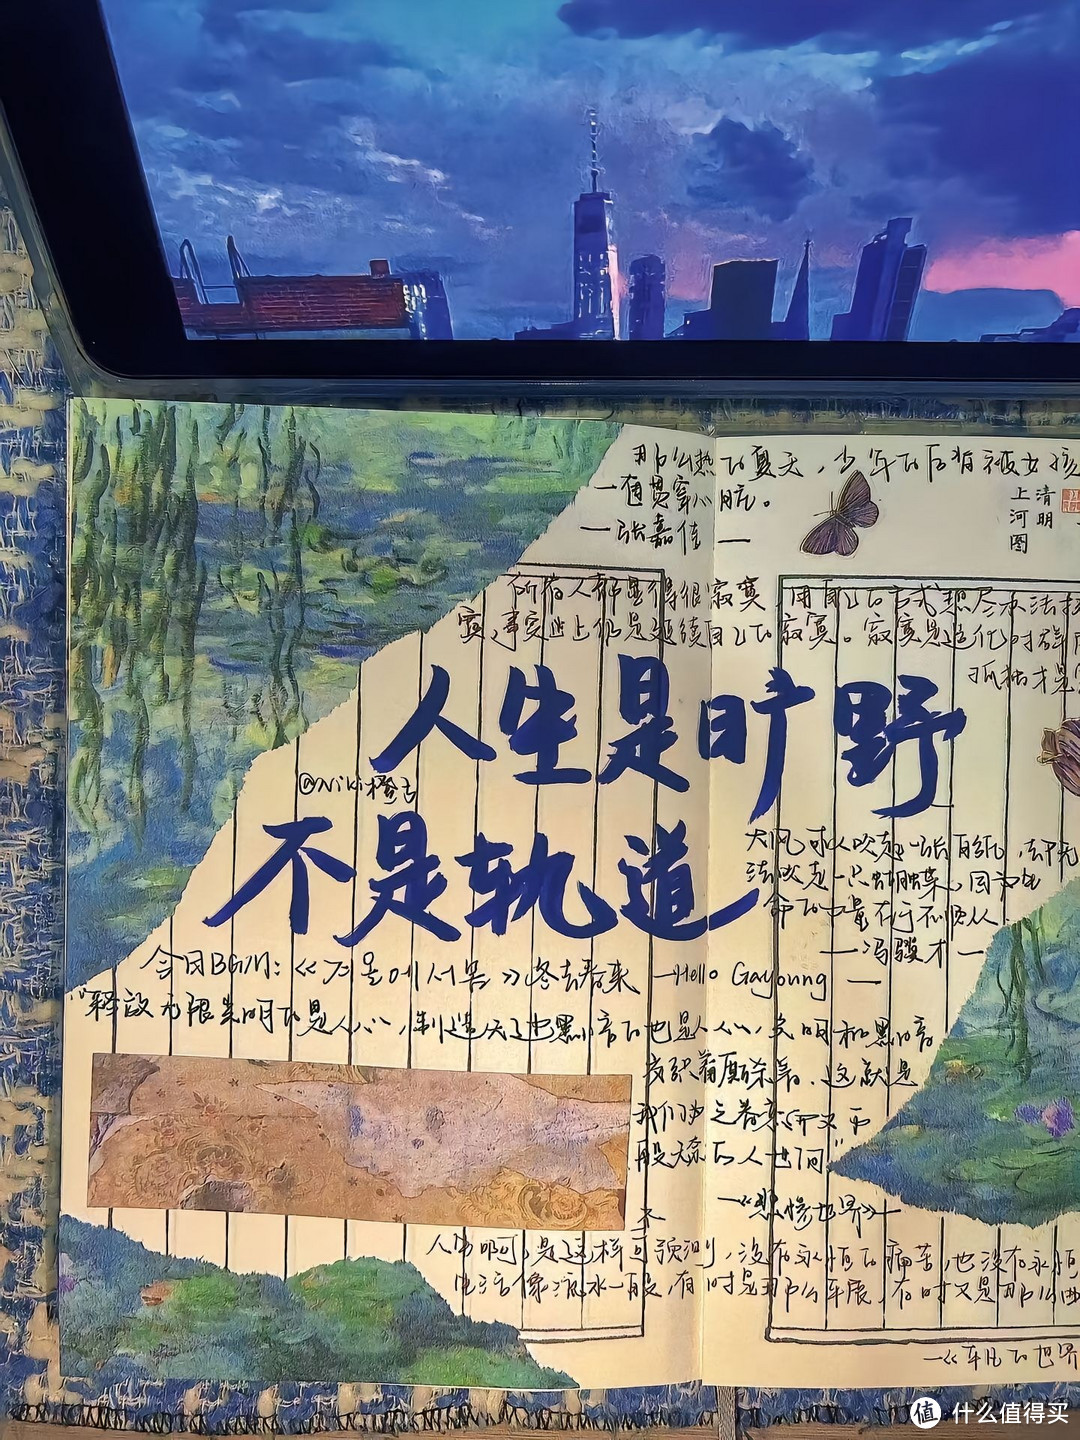 那么热的夏天,少年的后背被女孩
一 通贯穿心脏。
— 张嘉佳 —
清明
上河图
所有人都显得很寂寞,用自己的方式想尽办法排
寞,事实上仍是延续自己的寂寞。寂寞是造化对群
孤独才是
人生是旷野
@Niki橙子
不是轨道
大风可以吹起一张白纸,却无
法吹走一只蝴蝶,因为生
命的力量在于不顺从。
— 冯骥才 —
今日BGM:《겨울에서 봄》冬去春来 —Hello Gayoung —
"释放无限光明的是人心,制造无边黑暗的也是人心,光明和黑暗
交织着厮杀着,这就是
我们为之眷恋却又万
般无奈的人世间"
—《悲惨世界》—
人生啊,是这样不可预测,没有永恒的痛苦,也没有永恒
生活像流水一般,有时是那么平展,有时又是那么曲
—《平凡的世界
值 什么值得买